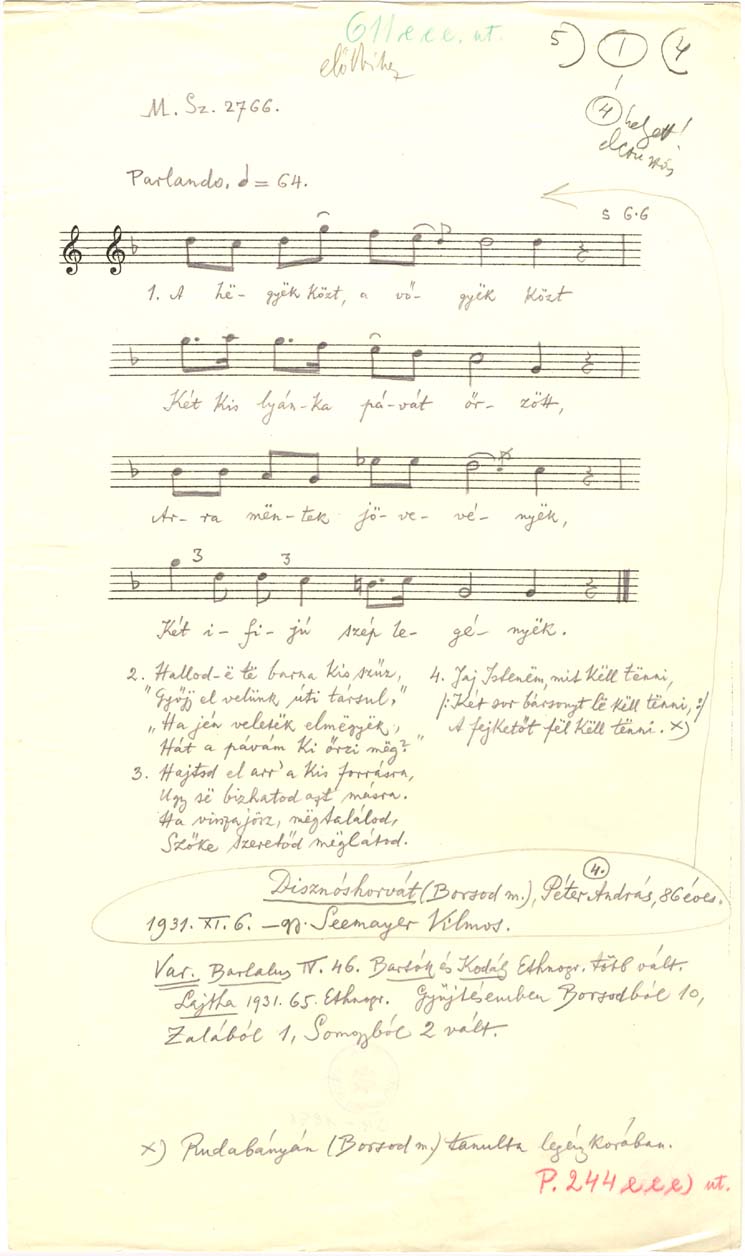 611 e e e. ut.
előbbihez
5) 1 (4
4 helyett!
M. Sz. 2766.
Parlando. = 64.
s 6.6
1. A hë- gyëk közt, a vö- gyëk közt
Két kis lyán-ka pá-vát őr- zött,
Ar- ra mën-tek jö- ve- vé- nyëk,
3 3
Két i- fi- jú szép le- gé- nyëk.
2. Hallod-ë të barna kis szűz,
"Gyöjj el velünk úti társul,"
"Ha jén veletëk elmëgyëk,
Hát a pávám ki őrzi mëg?"
3. Hajtsd el arr'a kis forrásra,
Ugy së bizhatod azt másra.
Ha visszajösz, mëgtalálod,
Szőke szeretőd mëglátod.
4. Jaj Istenëm, mit këll tënni,
/:Két sor bársonyt lë këll tënni,:/
A fejketőt fël këll tënni. x)
4.
Disznóshorvát (Borsod m.), Péter András, 86 éves.
1931. XI. 6. – gy. Seemayer Vilmos.
Var. Bartalus IV. 46. Bartók és Kodály Ethnogr. több vált.
Lajtha 1931. 65. Ethnogr. Gyűjtésemben Borsodból 10,
Zalából 1, Somogyból 2 vált.
x) Rudabányán (Borsod m.) tanulta legény korában.
P. 244 e e e) ut.